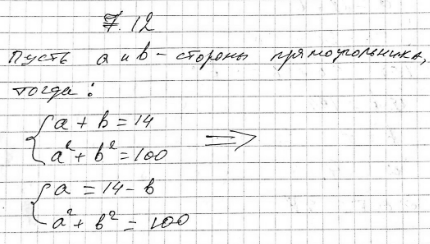 7.12
Пусть a и b - стороны прямоугольника,
тогда:
{ a + b = 14
{ a² + b² = 100 ⇒
{ a = 14 - b
{ a² + b² = 100